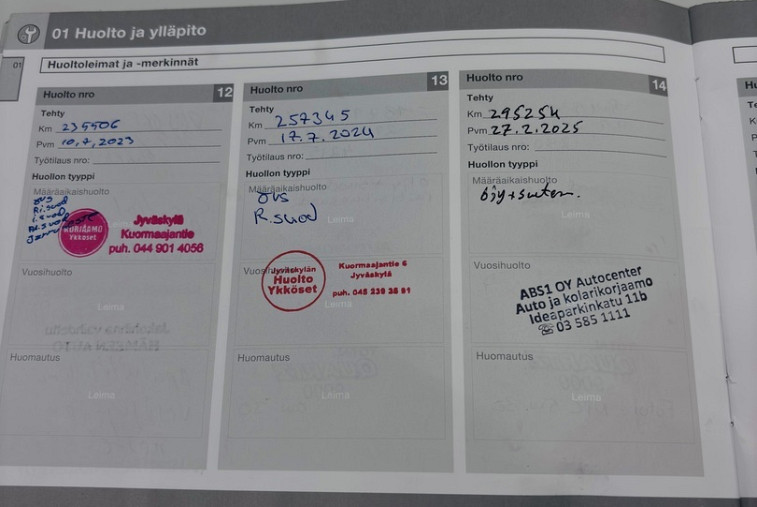 01 Huolto ja ylläpito
01
Huoltoleimat ja -merkinnät
Huolto nro 12
Tehty
Km 235506
Pvm 10.7.2023
Työtilaus nro:
Huollon tyyppi
Määräaikaishuolto
övs
Ri.suod
i.suod
KORJAAMO
Ykköset
Jyväskylä
Kuormaajantie
puh. 044 901 4056
Vuosihuolto
Leima
Huomautus
Leima
Huolto nro 13
Tehty
Km 257345
Pvm 17.7.2024
Työtilaus nro:
Huollon tyyppi
Määräaikaishuolto
övs
R.suod
Leima
Vuosihuolto
Jyväskylän
Huolto
Ykköset
Kuormaajantie 6
Jyväskylä
puh. 045 239 38 91
Leima
Huomautus
Leima
Huolto nro 14
Tehty
Km 295254
Pvm 27.2.2025
Työtilaus nro:
Huollon tyyppi
Määräaikaishuolto
öljy+suodatin.
Leima
Vuosihuolto
ABS1 OY Autocenter
Auto ja kolarikorjaamo
Ideaparkinkatu 11b
☎ 03 585 1111
Huomautus
Leima